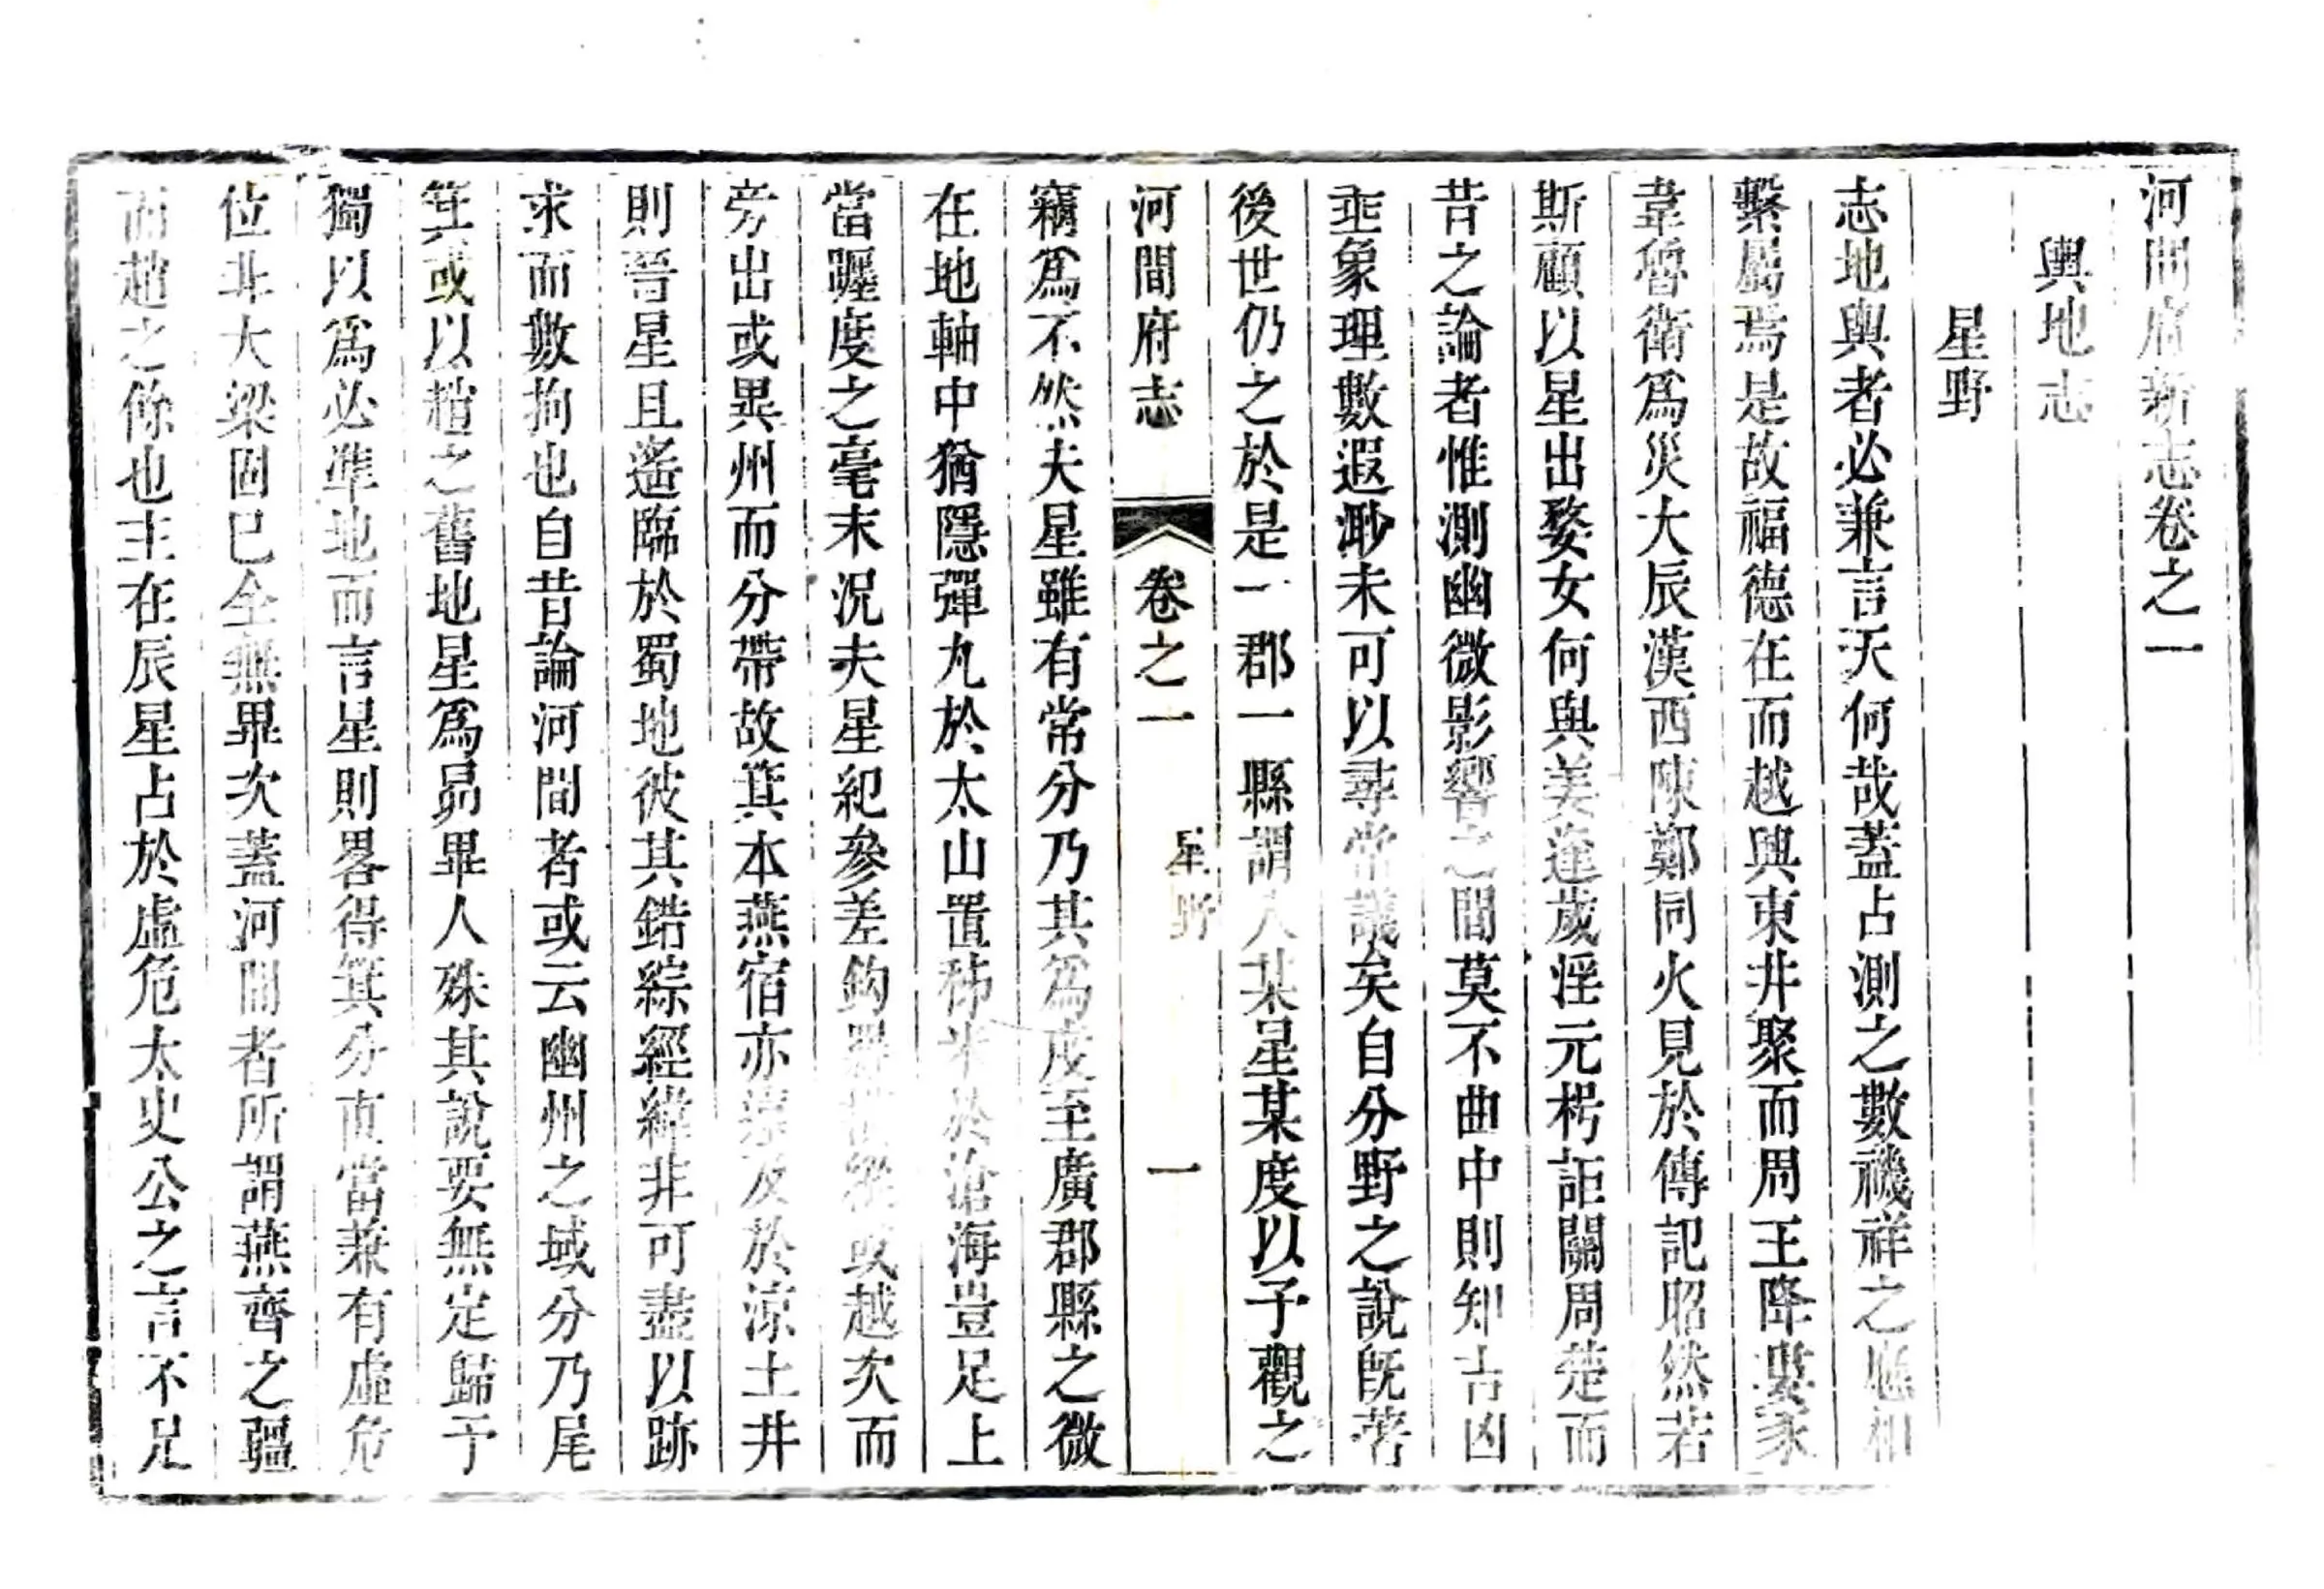 河間府新志卷之一
輿地志
星野
志地輿者必兼言天何哉蓋占測之數禨祥之應相
繫屬焉是故福德在而越興東井聚而周王降婁豕
韋魯衛為災大辰漢西陳鄭同火見於傳記昭然若
斯顧以星出婺女何與姜逢歲淫元枵詎關周楚而
昔之論者惟測幽微影響之間莫不曲中則知吉凶
垂象理數遐渺未可以尋常議矣自分野之說旣著
後世仍之於是一郡一縣謂入某星某度以予觀之
河間府志
卷之一
星野
一
竊爲不然夫星雖有常分乃其為度至廣郡縣之微
在地軸中猶隱彈丸於太山置稊米於滄海豈足上
當躔度之毫末況夫星紀參差鈎或越次而
旁出或異州而分帶故箕本燕宿亦及於涼土井
則晉星且遙臨於蜀地彼其錯綜經緯非可盡以跡
求而數拘也自昔論河間者或云幽州之域分乃尾
箕或以趙之舊地星爲昴畢人殊其說要無定歸予
獨以爲必準地而言星則畧得箕分直當兼有虛危
位非大梁固已全無畢次蓋河間者所謂燕齊之疆
而趙之餘也主在辰星占於虛危太史公之言不足